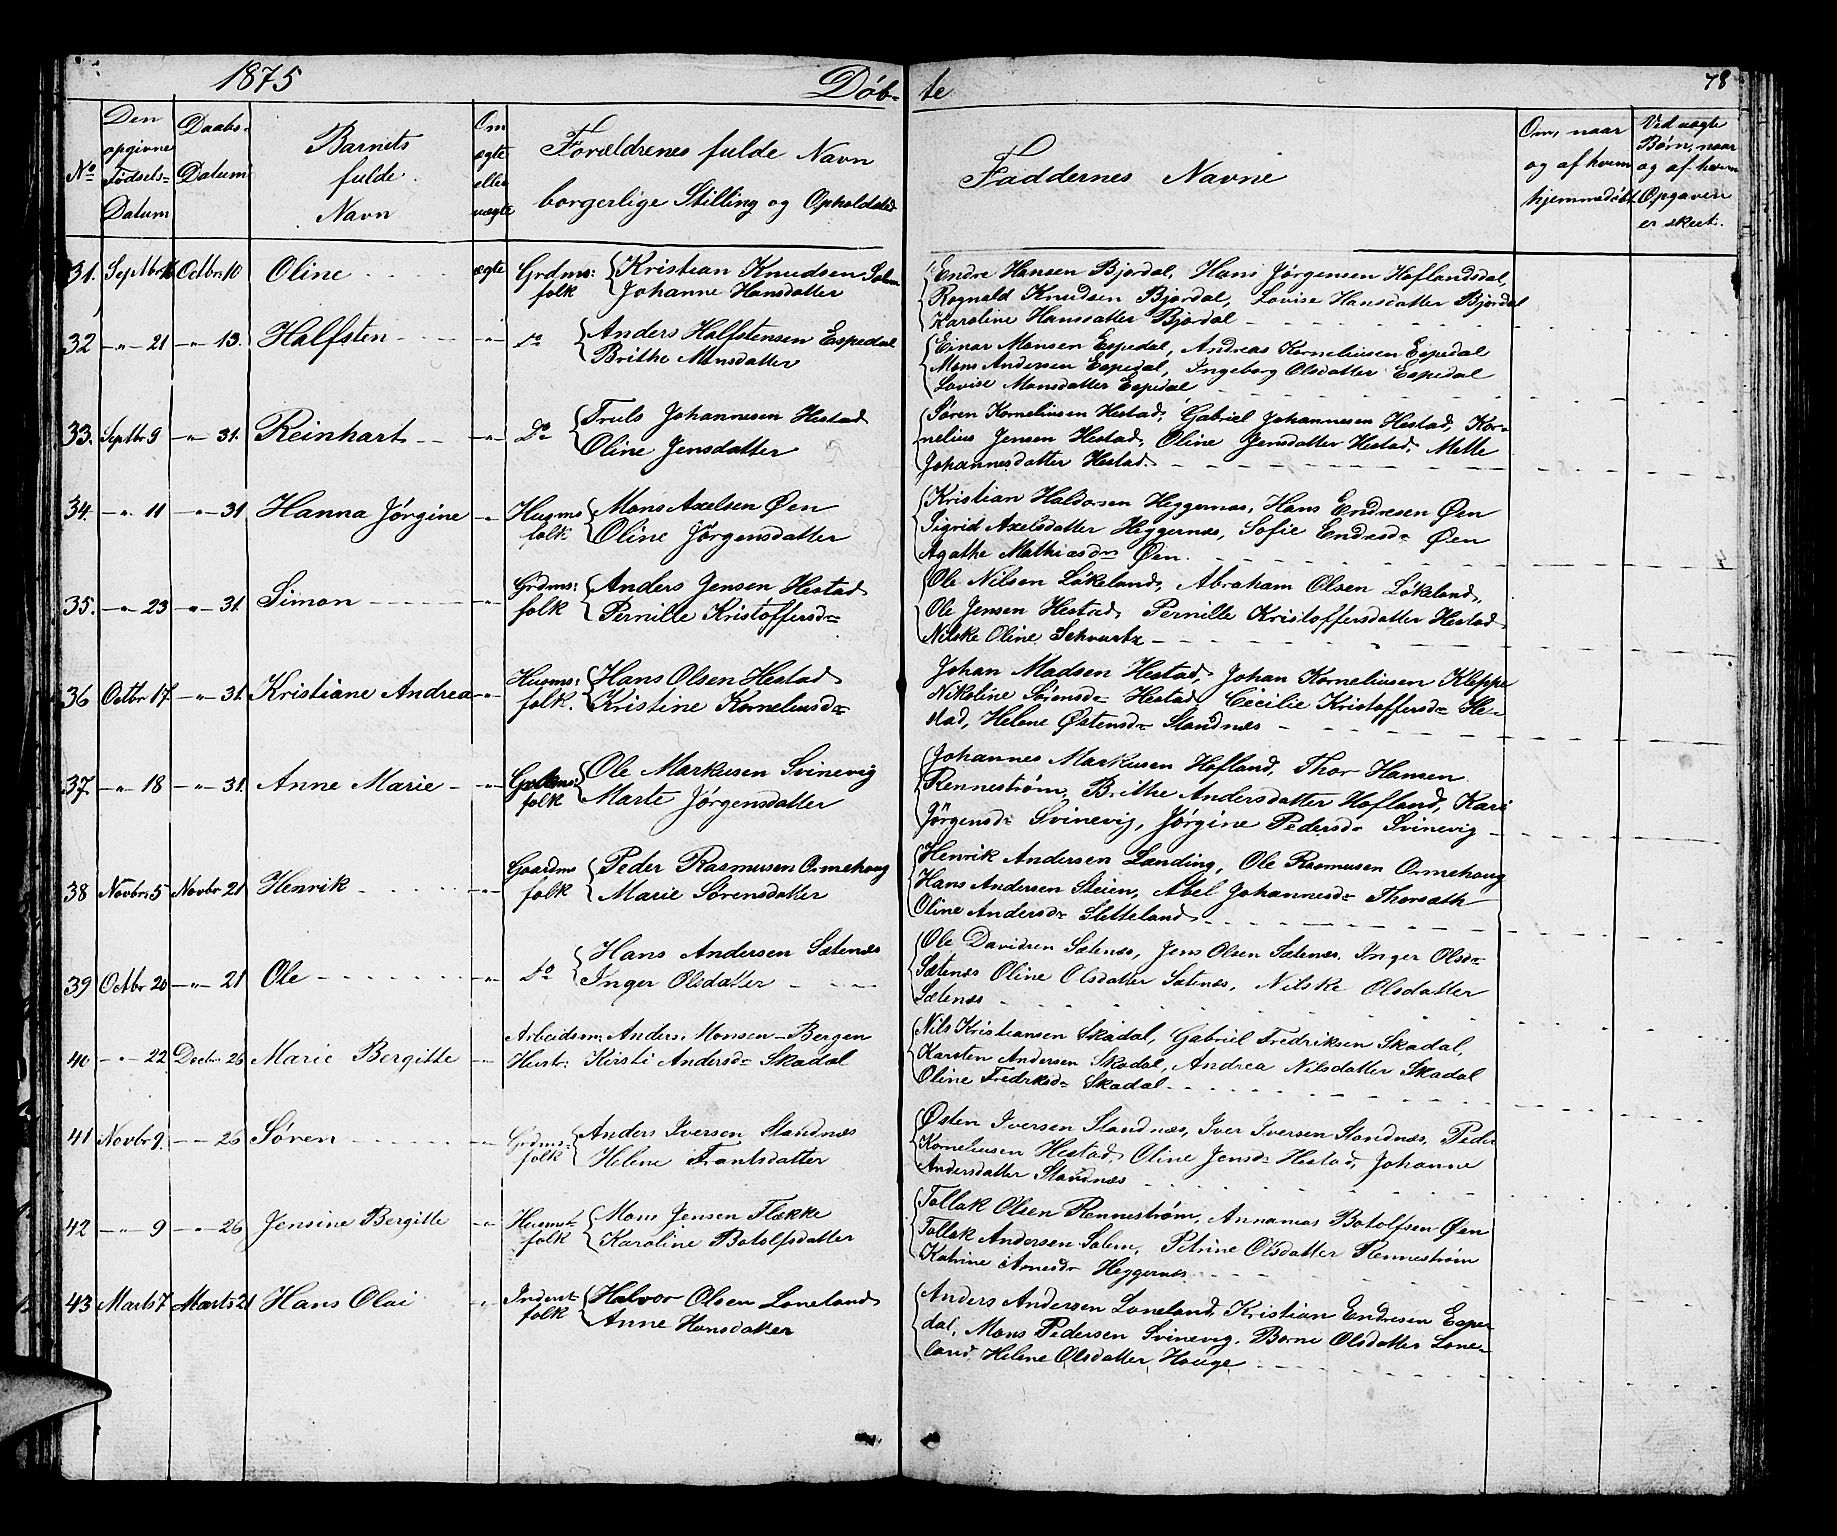 1875 Döb- te 78
No Den opgivne Fødsels- Datum Daabs- Datum Barnets fulde Navn Om ægte eller uægte Forældrenes fulde Navn borgerlige Stilling og Opholdsted Faddernes Navne Om, naar og af hvem hjemmedøbt Ved uægte Børn, naar og af hvem Opgaven er skeet.
31. Septbr 16 Octbr. 10 Oline ægte Grdms: folk Kristian Knudsen Solem
Johanne Hansdatter
Endre Hansen Bjordal, Hans Jørgensen Hoflandsdal,
Rognald Knudsen Bjordal, Lovise Hansdatter Bjordal
Karoline Hansdatter Bjordal
32 -"- 21 -"- 13. Halfsten -"- do Anders Halfstensen Espedal
Brithe Monsdatter
Einar Monsen Espedal, Andreas Korneliusen Espedal
Mons Andersen Espedal, Ingeborg Olsdatter Espedal
Lovise Monsdatter Espedal
33. Septbr 9 -"- 31. Reinhart -"- Do Truls Johannesen Hestad
Oline Jensdatter
Søren Korneliusen Hestad, Gabriel Johannesen Hestad, Kor-
nelius Jensen Hestad, Oline Jensdatter Hestad, Mette
Johannesdatter Hestad.
34. -"- 11 -"- 31 Hanna Jørgine -"- Husms folk Mons Axelsen Øen
Oline Jørgensdatter
Kristian Haldorsen Heggernæs, Hans Endresen Øen
Sigrid Axelsdatter Heggernæs, Sofie Endresdr Øen
Agathe Mathiasdr Øen.
35. -"- 23 -"- 31. Simon -"- Grdms: folk Anders Jensen Hestad
Pernille Kristoffersdr
Ole Nilsen Løkeland, Abraham Olsen Løkeland,
Ole Jensen Hestad, Pernille Kristoffersdatter Hestad
Nilske Oline Schvartz
36 Octbr 17. -"- 31. Kristiane Andrea -"- Husms: folk. Hans Olsen Hestad
Kristine Korneliusdr
Johan Madsen Hestad, Johan Korneliusen Kleppe
Nikoline Sørensdr Hestad, Cecilie Kristoffersdr He-
stad, Helene Østensdr Standnæs
37. -"- 18 -"- 31. Anne Marie -"- Grdms: folk Ole Markusen Svinevig
Marte Jørgensdatter
Johannes Markusen Hofland, Thor Hansen
Rennestrøm, Brithe Andersdatter Hofland, Kari
Jørgensdr Svinevig, Jørgine Pedersdr Svinevig
38 Novbr. 5 Novbr 21 Henrik -"- Gaardms folk Peder Rasmusen Ormehoug
Marie Sørensdatter
Henrik Andersen Landing, Ole Rasmusen Ormehoug
Hans Andersen Steien, Abel Johannesdr Thorsæth
Oline Andersdr Sletteland
39 Octbr 20 -"- 21 Ole -"- do Hans Andersen Sætenæs
Inger Olsdatter
Ole Davidsen Sætenæs, Jens Olsen Sætenæs, Inger Olsdr
Sætenæs Oline Olsdatter Sætenæs, Nilske Olsdatter
Sætenæs
40 -"- 22 Decbr. 26 Marie Bergitte -"- Arbeidsm: Anders Monsen Bergen
Hustr: Kirsti Andersdr Skadal
Nils Kristiansen Skadal, Gabriel Fredriksen Skadal,
Karsten Andersen Skadal, Andrea Nilsdatter Skadal
Oline Fredriksdr Skadal
41 Novbr 9. -"- 26 Søren -"- Grdms: folk Anders Iversen Standnæs
Helene Frantsdatter
Østen Iversen Standnæs, Iver Iversen Standnæs, Peder
Korneliusen Hestad, Oline Jensdr Hestad, Johanne
Andersdatter Standnæs
42 -"- 9 -"- 26 Jensine Bergitte -"- Husms: folk Mons Jensen Flække
Karoline Botolfsdatter
Tollak Olsen Rennestrøm, Annanias Botolfsen Øen
Tollak Andersen Solem, Petrine Olsdatter Rennestrøm
Katrine Arnesdr Heggernæs
43 Marts 7 Marts 21 Hans Olai -"- Inderst folk Halvor Olsen Loneland
Anne Hansdatter
Anders Andersen Loneland, Kristian Endresen Espe-
dal, Mons Pedersen Svinevig, Borni Olsdatter Lone-
land, Helene Olsdatter Houge